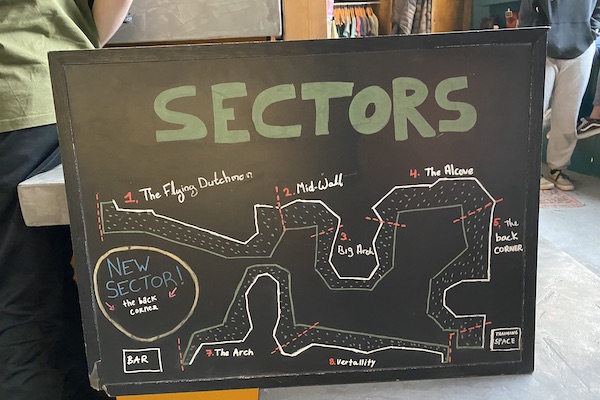 SECTORS
1. The Flying Dutchman
2. Mid-Wall
3.
Big Arch
4. The Alcove
5. The
back
CORNER
NEW
SECTOR!
the back
corner
BAR
7. The Arch
8. Vertallity
TRAINING
SPACE